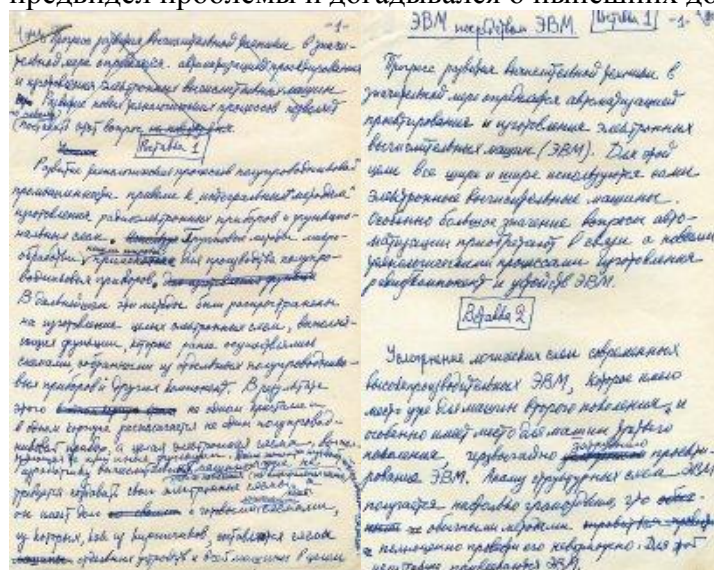 предвидел проблемы и догадывался о нынешних до
-1-
Прогресс развития вычислительной техники в значи-
тельной мере определяется автоматизацией проектирования
и изготовления электронных вычислительных машин
Развитие новых технологических процессов
этот вопрос
Вставка 1
Развитие технологических процессов полупроводниковой
промышленности привели к интегральным методам
изготовления радиоэлектронных приборов и функцио-
нальных схем. Групповые методы
обработки для производства полупро-
водниковых приборов.
В дальнейшем эти методы были распространены
на изготовление целых электронных схем, выполня-
ющих функции, которые ранее осуществлялись
схемами собранными из отдельных полупроводнико-
вых приборов и других компонент. В результате
этого на одном кристалле и
в одном корпусе располагается не один полупровод-
никовый прибор, а целая электронная схема,
не
требуется
он имеет дело с готовыми схемами,
из которых, как из кирпичиков, составляются схемы
отдельных устройств и всей машины в целом
ЭВМ посредством ЭВМ Вставка 1 -1-
Прогресс развития вычислительной техники в
значительной мере определяется автоматизацией
проектирования и изготовления электронных
вычислительных машин (ЭВМ). Для этой
цели все шире и шире используются сами
электронные вычислительные машины.
Особенно большое значение вопросы авто-
матизации приобретают в связи с новыми
технологическими процессами изготовления
и устройств ЭВМ.
Вставка 2
Усложнение логических схем современных
высокопроизводительных ЭВМ, которое имело
место уже для машин второго поколения, и
особенно имеет место для машин третьего
поколения, чрезвычайно затруднило проекти-
рование ЭВМ. Анализ структурных схем ЭВМ
получается настолько громоздким, что
обычными методами
полноценно проверить его невозможно. Для этой
цели привлекаются ЭВМ.